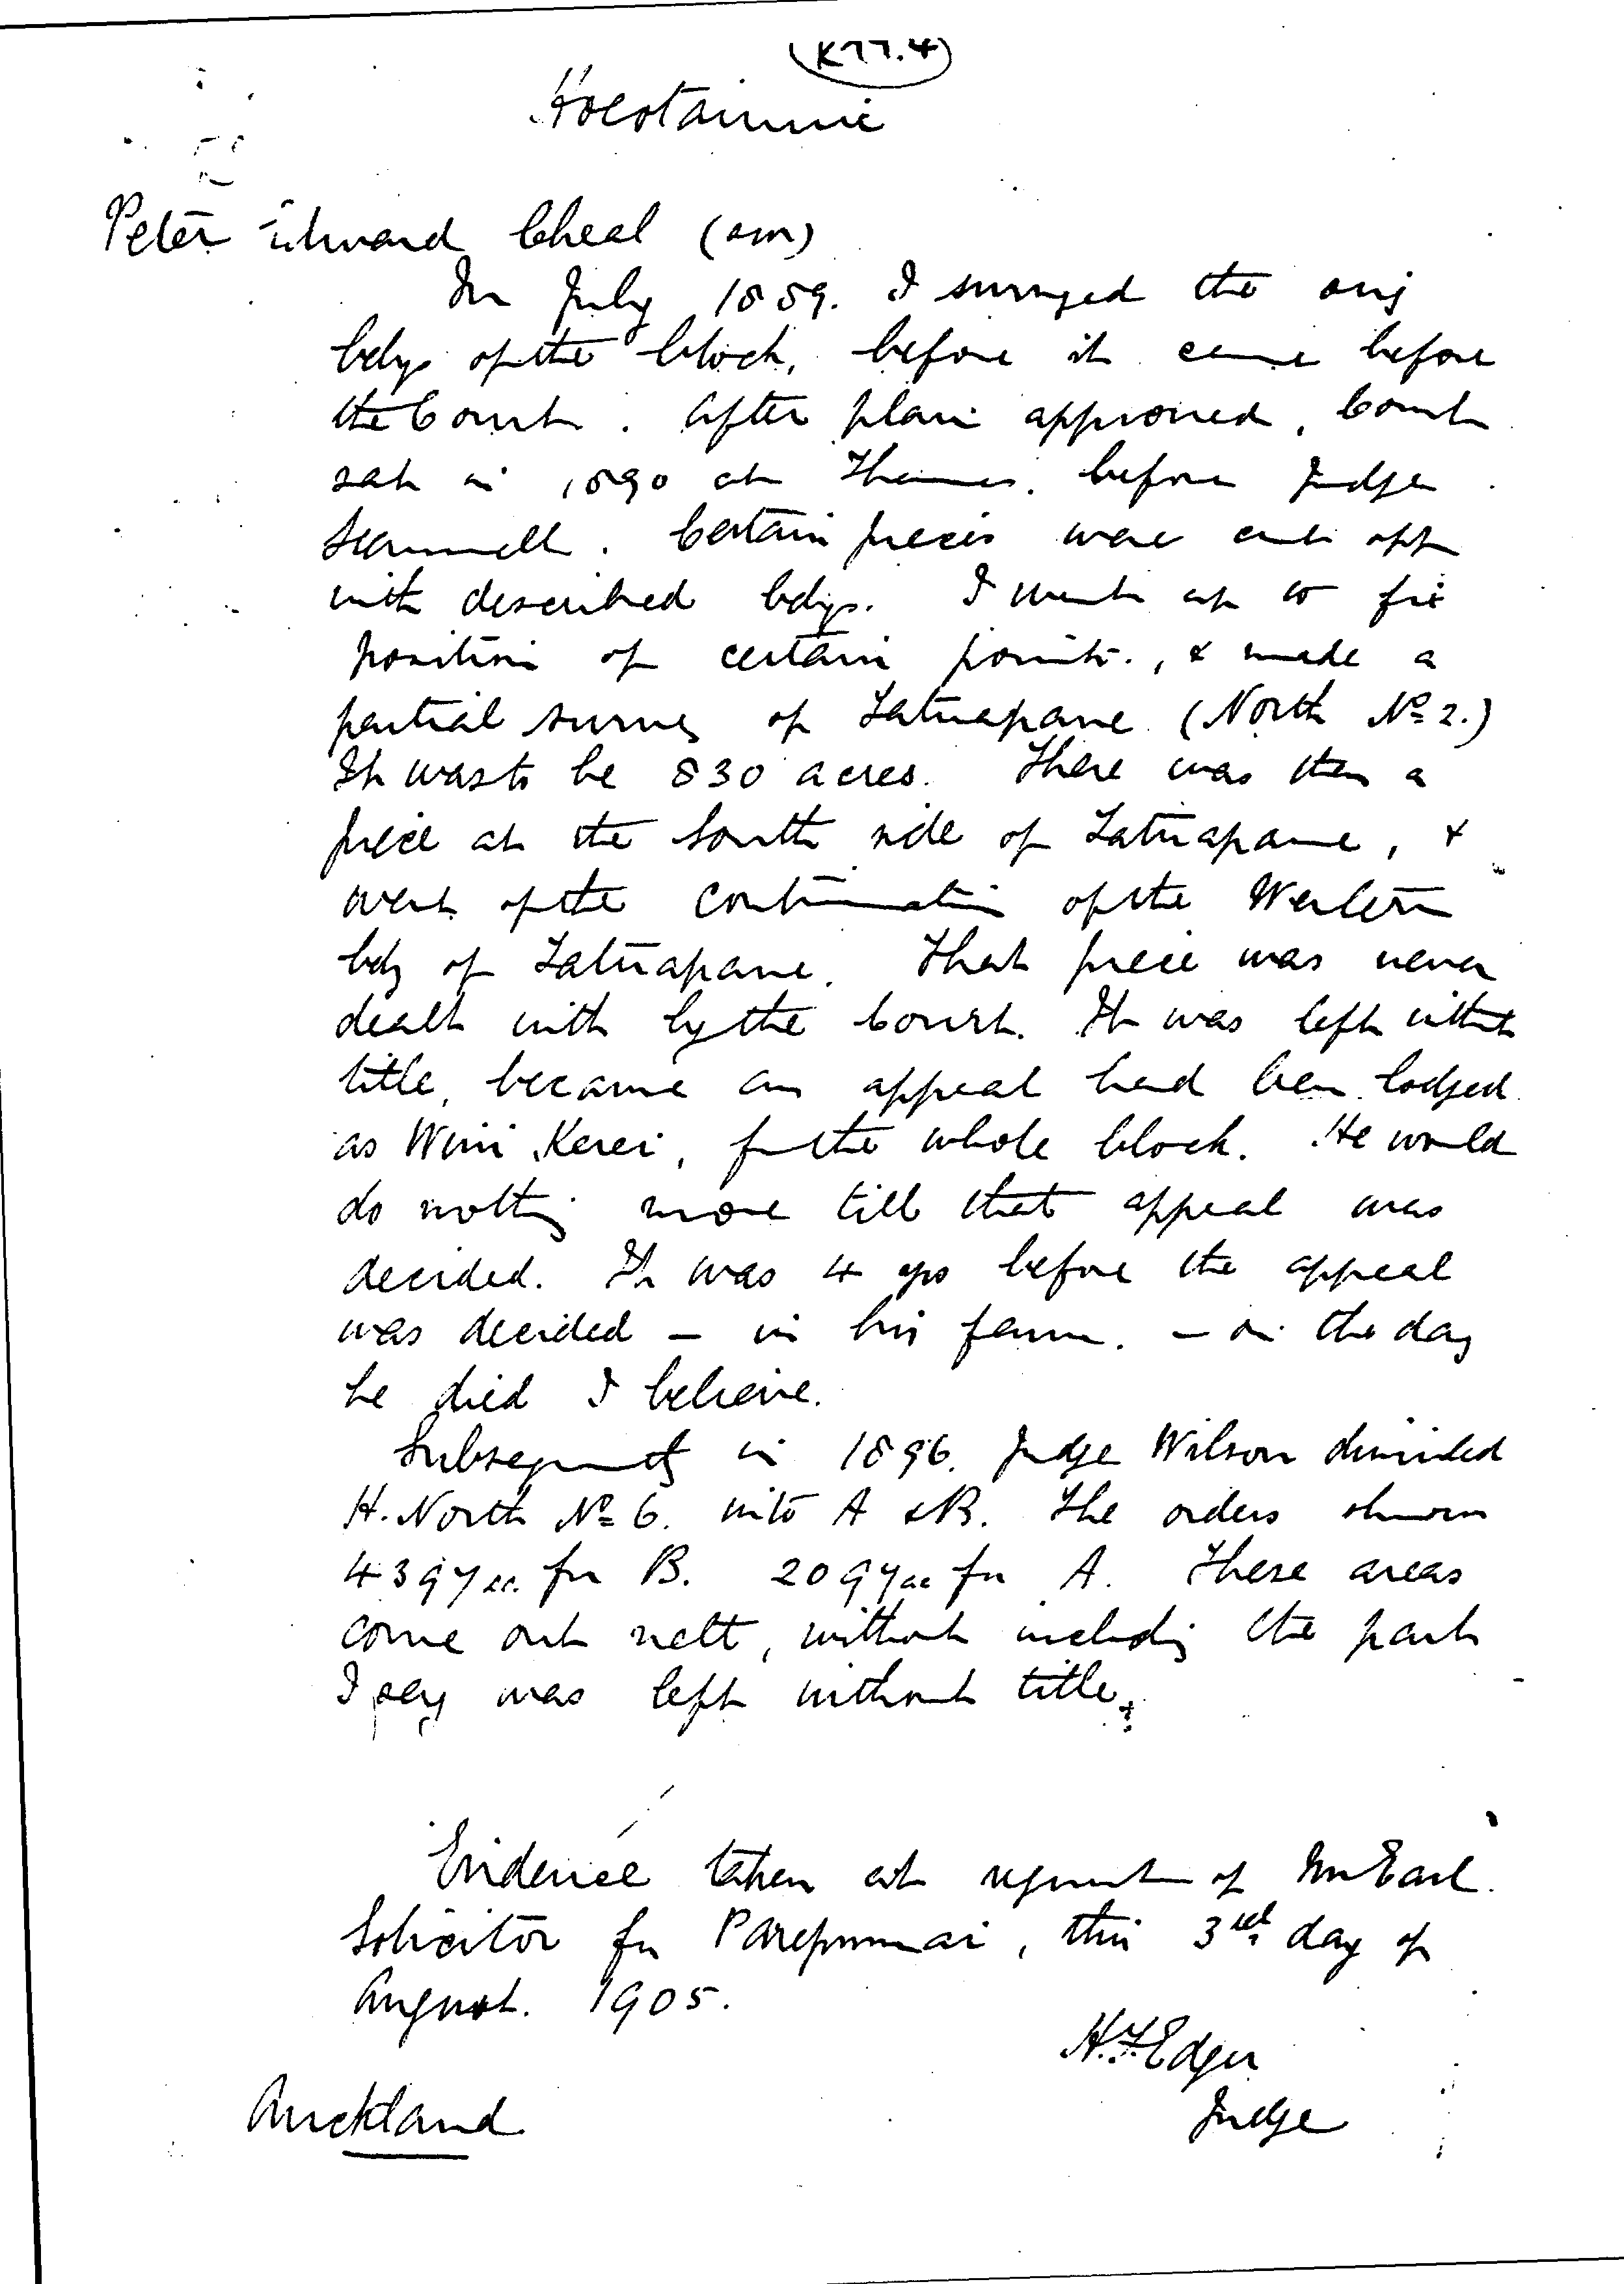 (K77.4)
Hoeotainui
Peter Edward Cheal (sm)
In July 1889. I surveyed the orig
bdys of the block, before it came before
the Court. After plan approved, Court
sat in 1890 at Thames. before Judge
Scannell. Certain pieces were cut off
with described bdys. I went up to fix
position of certain points., & made a
partial survey of Tatuapane (North No 2.)
It was to be 830 acres. There was then a
piece at the South side of Tatuapane, &
west of the continuation of the Western
bdy of Tatuapane. That piece was never
dealt with by the Court. It was left without
title, because an appeal had been lodged
as Wini Kerei, for the whole block. He would
do nothing more till that appeal was
decided. It was 4 yrs before the appeal
was decided – in his favour. – on the day
he died I believe.
Subsequently in 1896. Judge Wilson divided
H. North No 6. into A & B. The orders shown
4397 ac. for B. 2097 ac for A. These areas
come out nett, without including the part
I say was left without title.
Evidence taken at request of Mr Earl.
Solicitor for Parepumai, this 3rd day of
August. 1905.
H.F. Edger
Judge
Auckland